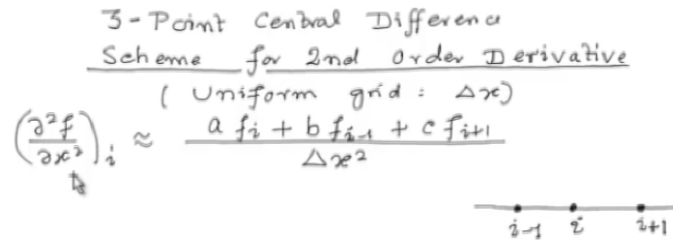 3-Point Central Difference
Scheme for 2nd Order Derivative
(Uniform grid: Δx)
(∂²f/∂x²)ᵢ ≈ (a fᵢ + b fᵢ₋₁ + c fᵢ₊₁)/Δx²
i-1 i i+1